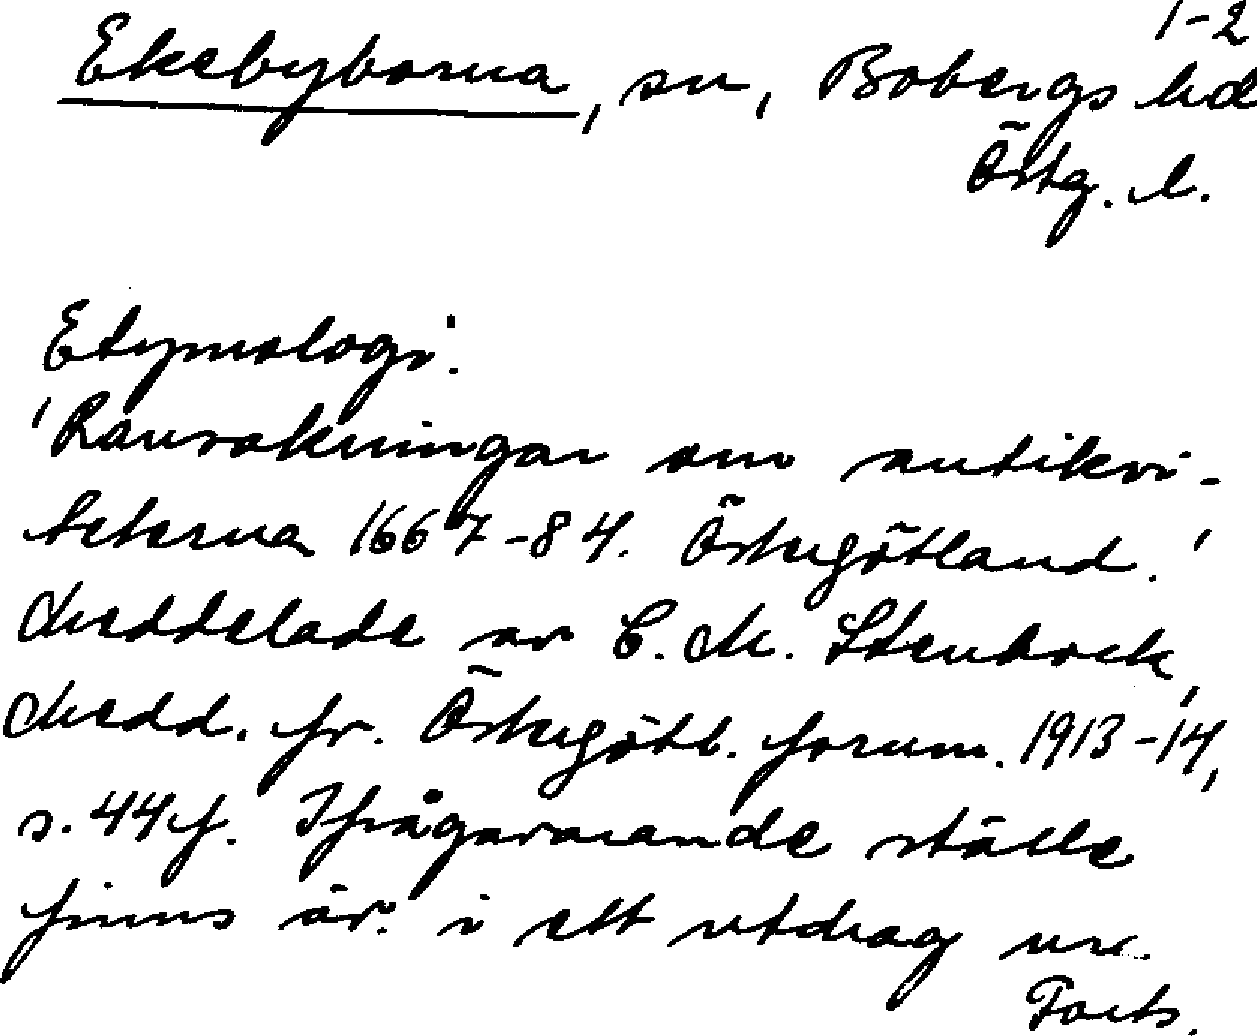 1-2
Ekebyborna, sn, Bobergs hd
Östg. l.
Etymologi:
'Rannsakningar om antikvi-
teterna 1667-84. Östergötland.'
Meddelade av C. M. Stenbock,
Medd. fr. Östergötl. fornm. 1913-14,
s. 44 f. Ifrågavarande ställe
finns i ett utdrag ur
Forts.